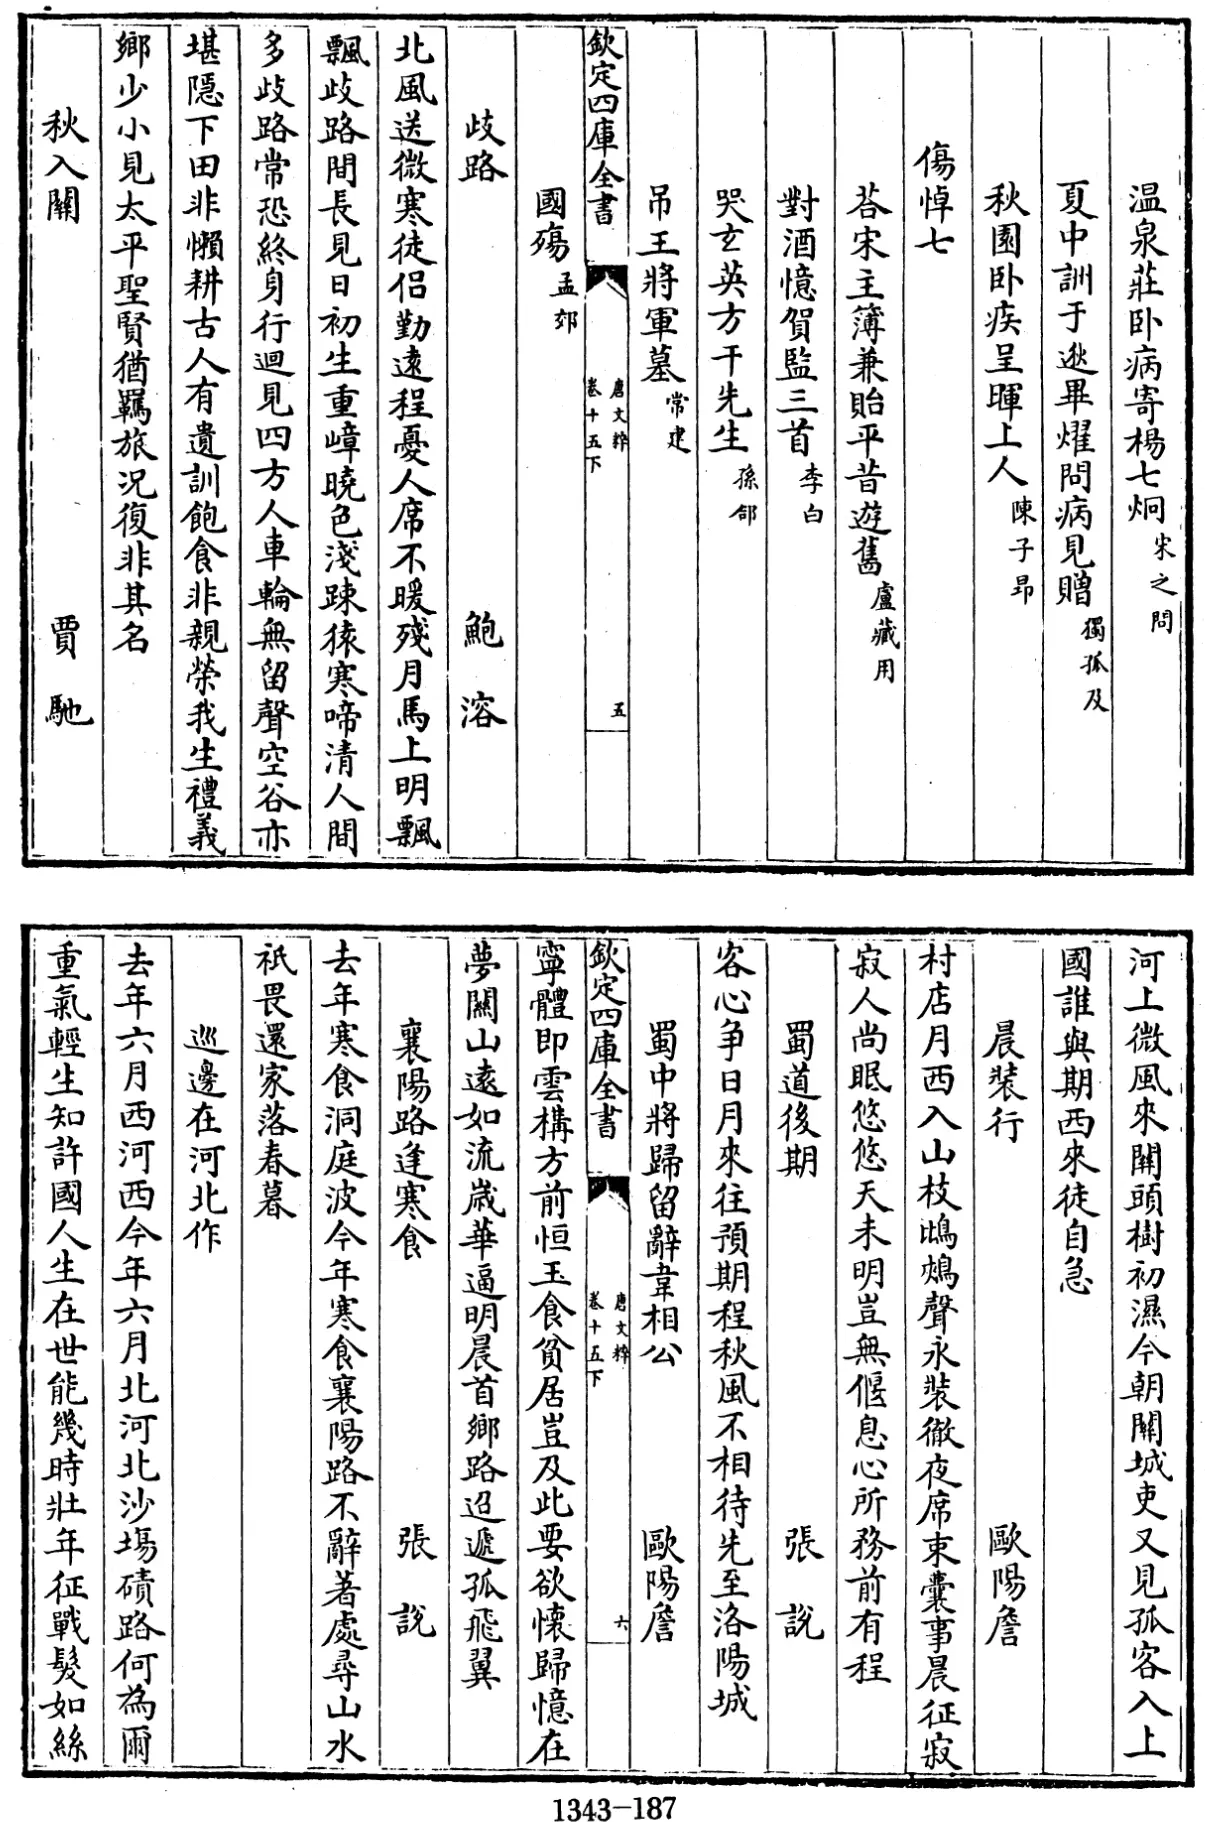 温泉莊卧病寄楊七炯宋之問
夏中訓于逖畢燿問病見贈獨孤及
秋園卧疾呈暉上人陳子昂
傷悼七
荅宋主簿兼貽平昔遊舊盧藏用
對酒憶賀監三首李白
哭玄英方干先生孫郃
吊王將軍墓常建
欽定四庫全書
唐文粹
卷十五下
五
國殤孟郊
歧路 鮑溶
北風送微寒徒侣勤遠程憂人席不暖殘月馬上明飄
飄歧路間長見日初生重嶂曉色淺踈猿寒啼清人間
多歧路常恐終身行迴見四方人車輪無留聲空谷亦
堪隱下田非懶耕古人有遺訓飽食非親榮我生禮義
鄉少小見太平聖賢猶羈旅况復非其名
秋入關 賈馳
河上微風來關頭樹初濕今朝關城吏又見孤客入上
國誰與期西來徒自急
晨裝行 歐陽詹
村店月西入山枝鵾鴂聲永裝徹夜席束囊事晨征寂
寂人尚眠悠悠天未明豈無偃息心所務前有程
蜀道後期 張說
客心争日月來往預期程秋風不相待先至洛陽城
蜀中將歸留辭韋相公 歐陽詹
欽定四庫全書
唐文粹
卷十五下
六
寧體即雲構方前恒玉食貧居豈及此要欲懷歸憶在
夢關山遠如流嵗華逼明晨首鄉路迢遞孤飛翼
襄陽路逢寒食 張說
去年寒食洞庭波今年寒食襄陽路不辭著處尋山水
祇畏還家落春暮
巡邊在河北作
去年六月西河西今年六月北河北沙塲磧路何為爾
重氣輕生知許國人生在世能幾時壯年征戰髮如絲
1343-187